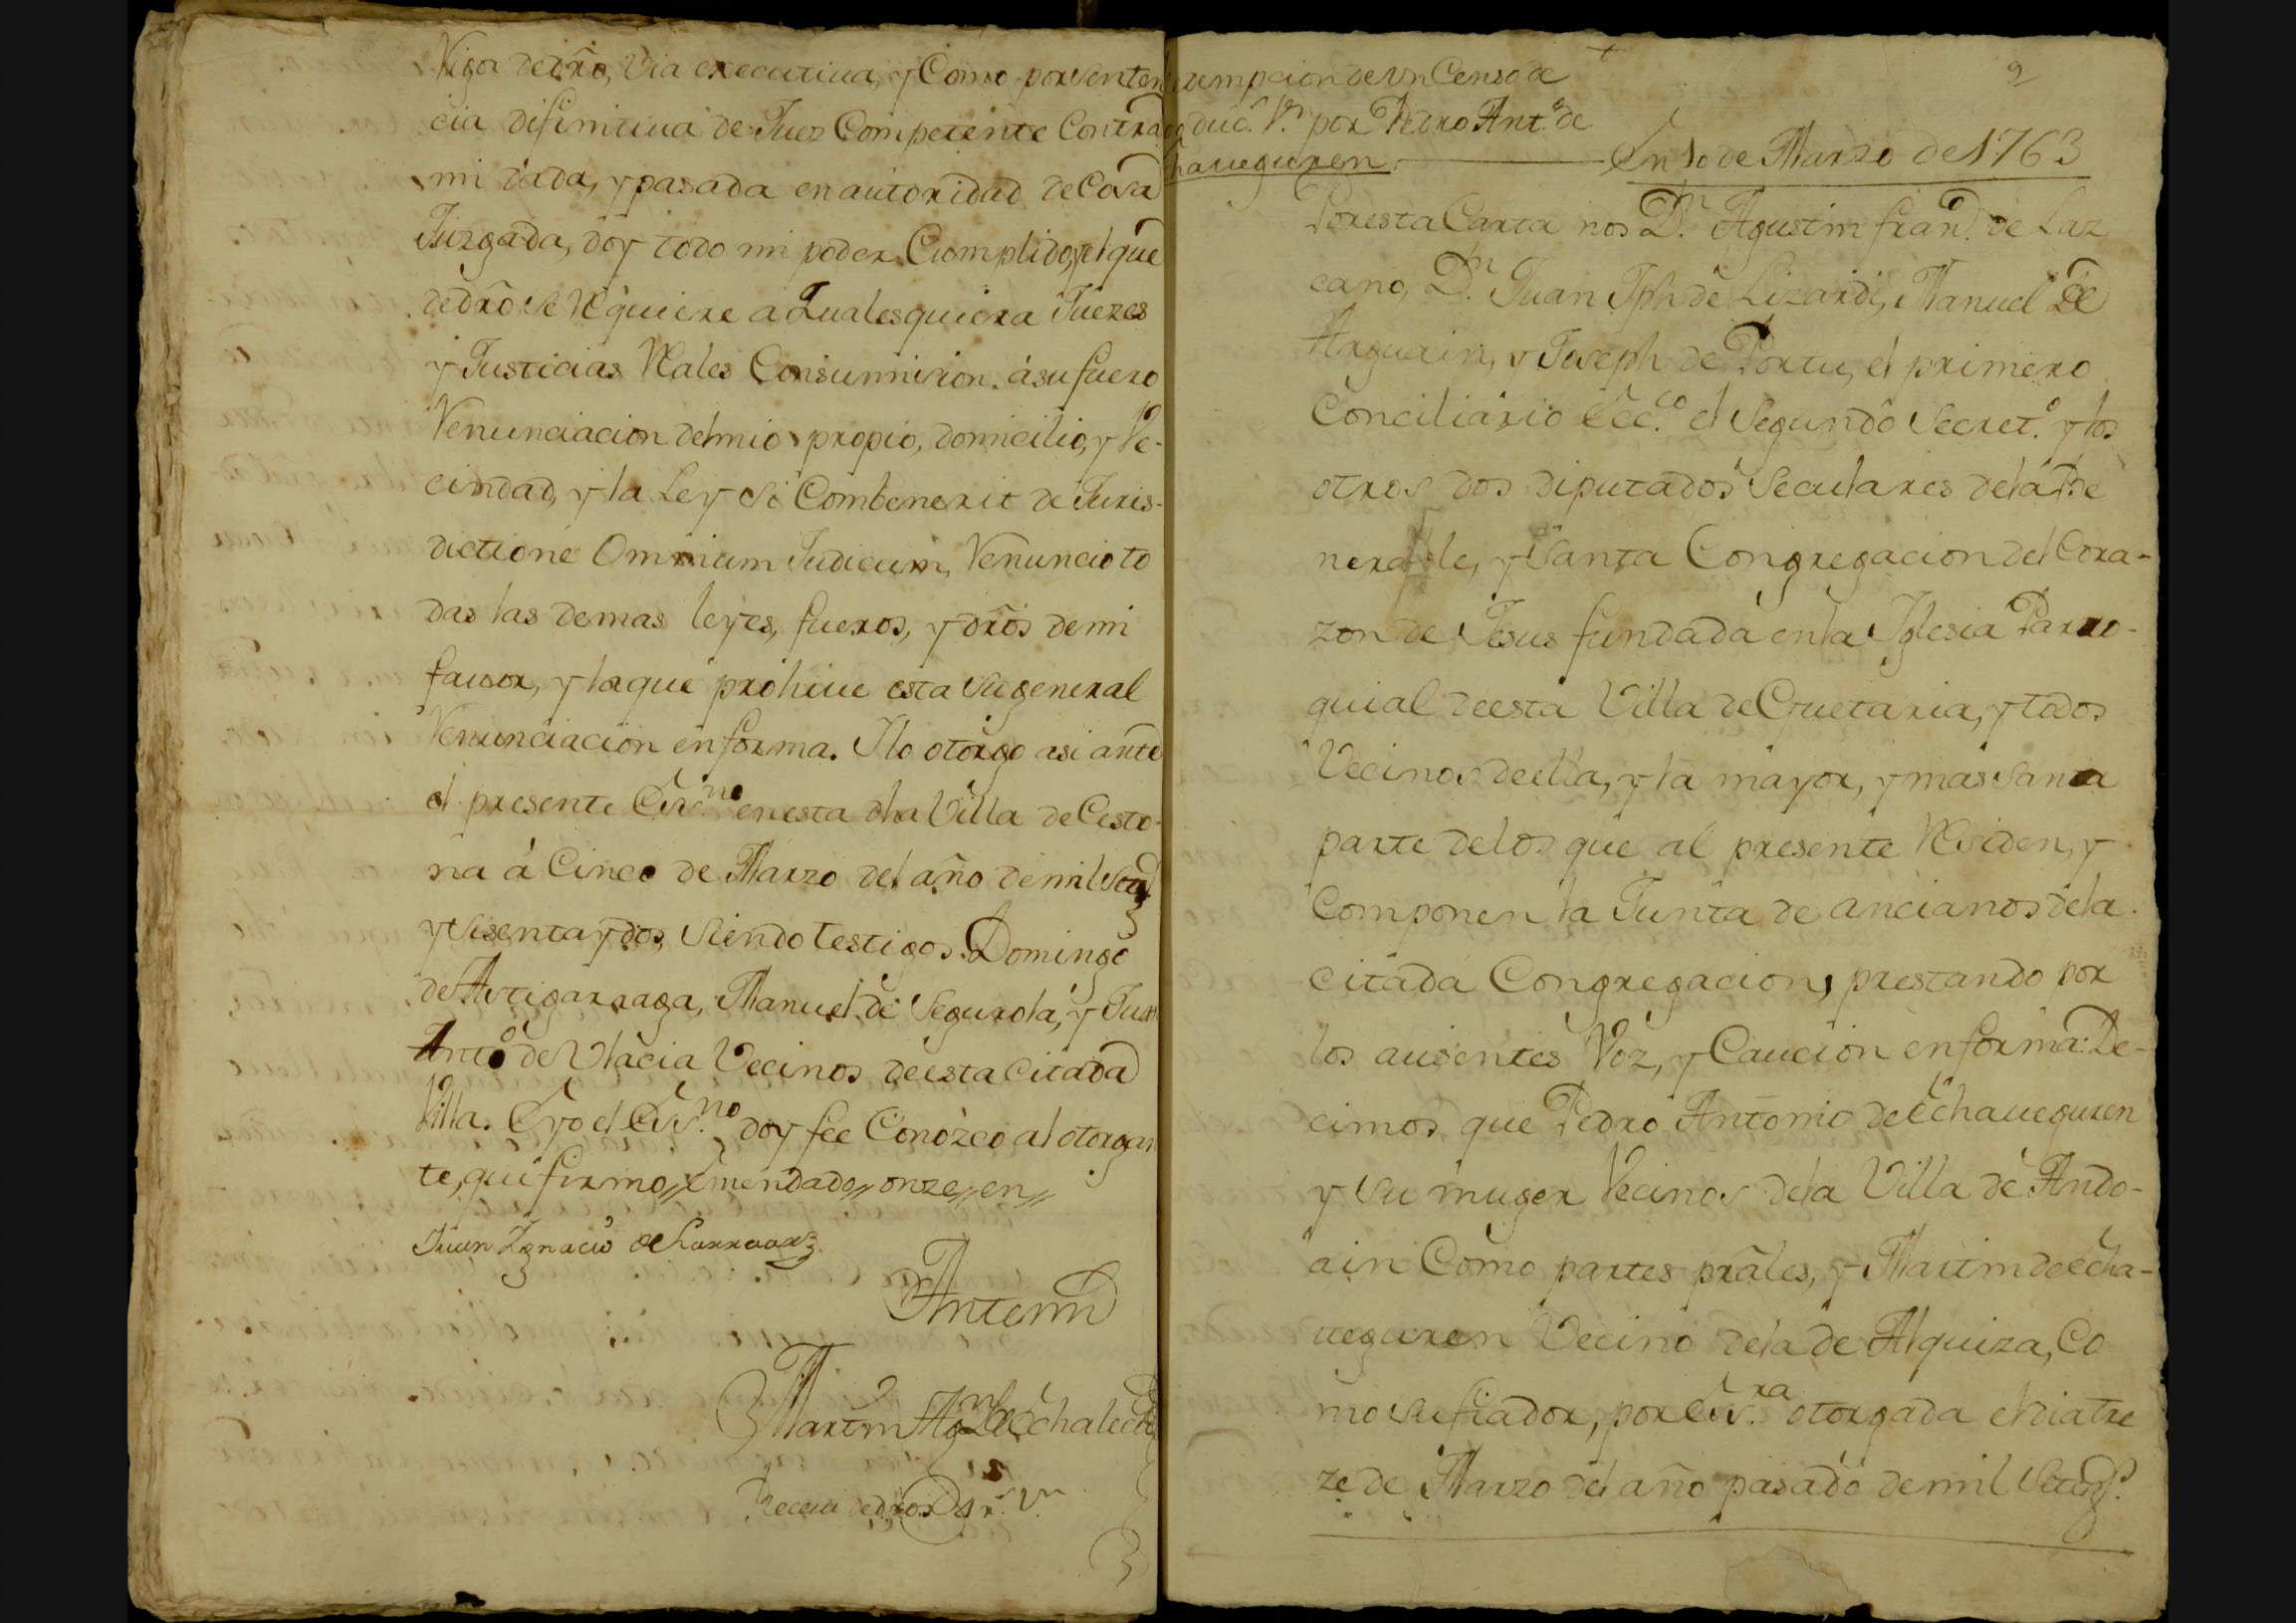 Vigor de dr̃o, Via executiua, y Como por senten
cia difinitiua de Juez Competente Contra
mi dada, y pasada en autoridad de Cosa
Juzgada, doy todo mi poder Cumplido, y el que
de dr̃o se requiere a Qualesquiera Juezes
y Justicias Reales Con sumision. á su fuero
Renunciacion del mio propio, domicilio, y Ve-
cindad, y la Ley Si Combenerit de Juris-
dictione Omnium Judicum, Renuncio to
das las demas leyes, fueros, y dr̃os de mi
fauor, y la que prohiue esta su general
Renunciacion en forma. I lo otorgo asi ante
el presente Ess.no en esta dha Villa de Cesto-
na á Cinco de Marzo del año de mil setez
y sesenta y dos, Siendo testigos Domingo
de Astigarraga, Manuel de Segurola, y Juan
Anto de Vlacia Vecinos de esta citada
Villa. E yo el Ess.no doy fee Conozco al otorgan
te, qui firmo // Emendado // onze // en //
Juan Ignacio de Larraar
Antemi
Martin Ag.n de Echalecu
Receui de dros D.s r.s V.n
dempcion de vn Censo de
duc.s V.n por Pedro Ant.o de
haueguren. En 10 de Marzo de 1763
2
Por esta Carta nos D.n Agustin fran.co de Laz
cano, D.n Juan Jph de Lizardi, Manuel de
Arguain, y Joseph de Portu, el primero
Conciliario Ecc.co el Segundo Secret.o y los
otros dos diputados Seculares de la Ve
nerable, y Santa Congregacion del Cora-
zon de Jesus fundada en la Iglesia Parro-
quial de esta Villa de Guetaria, y todos
Vecinos de ella, y la mayor, y mas Santa
parte de los que al presente Residen, y
Componen la Junta de ancianos de la
citada Congregacion, prestando por
los ausentes Voz, y Caucion en forma: De-
cimos que Pedro Antonio de Echaueguren
y su muger Vecinos de la Villa de Ando-
ain Como partes prãles, y Martin de Echa-
ueguren Vecino de la de Alquiza, Co
mo su fiador, por Ess.ra otorgada el dia tre
ze de Marzo del año pasado de mil Setez.s